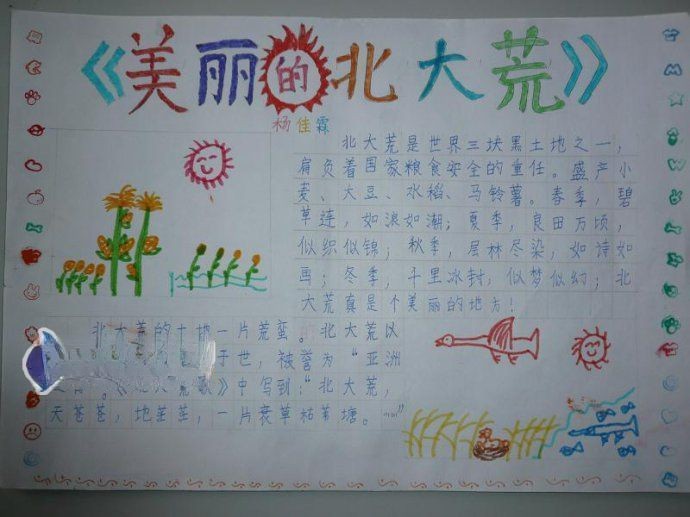 《美丽的北大荒》
杨佳霖
北大荒是世界三块黑土地之一,
肩负着国家粮食安全的重任。盛产小
麦、大豆、水稻、马铃薯。春季,碧
草莲,如浪如潮;夏季,良田万顷,
似织似锦;秋季,层林尽染,如诗如
画;冬季,千里冰封,似梦似幻;北
大荒真是个美丽的地方!
北大荒的土地一片荒蛮。北大荒以
于世,被誉为“亚洲
。《 荒歌》中写到:“北大荒,
天苍苍,地茫茫,一片衰草枯苇塘。……”